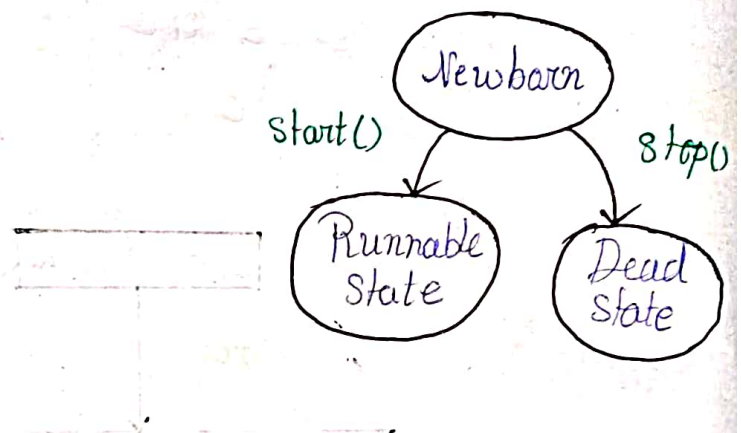 Newborn
start()
stop()
Runnable
state
Dead
state